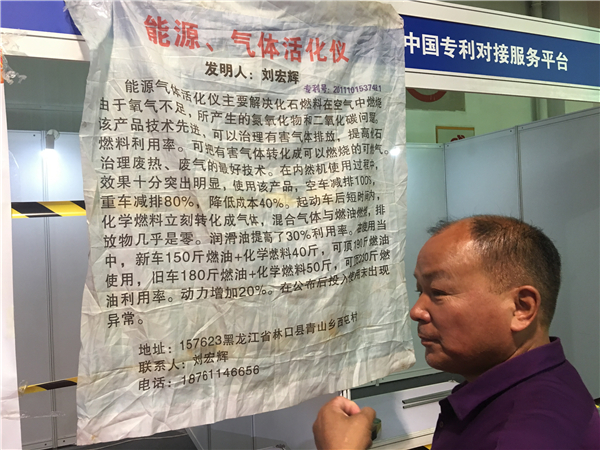 能源、气体活化仪
发明人：刘宏辉
专利号：201110153748.1
能源气体活化仪主要解决化石燃料在空气中燃烧
由于氧气不足，所产生的氮氧化物和二氧化碳问题。
该产品技术先进，可以治理有害气体排放，提高石
燃料利用率。可把有害气体转化成可以燃烧的可燃气。
治理废热、废气的最好技术。在内燃机使用过程中，
效果十分突出明显，使用该产品，空车减排100%，
重车减排80%，降低成本40%。起动车后短时间内，
化学燃料立刻转化成气体，混合气体与燃油燃，排
放物几乎是零。润滑油提高了30%利用率。在使用当
中，新车150斤燃油+化学燃料40斤，可顶190斤燃油
使用，旧车180斤燃油+化学燃料50斤，可顶230斤燃
油利用率。动力增加20%。在公布后投入使用未出现
异常。
地址：157623黑龙江省林口县青山乡西屯村
联系人：刘宏辉
电话：18761146656
中国专利对接服务平台